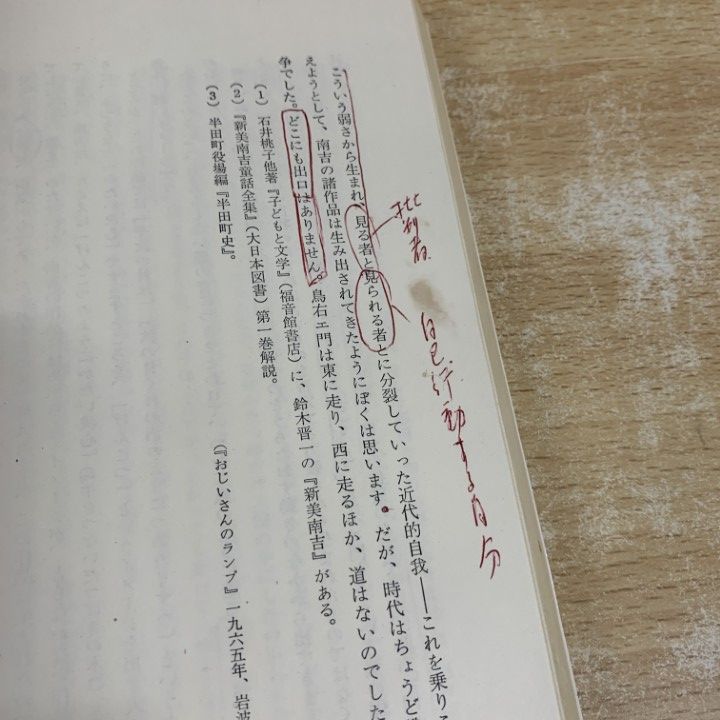 批判者
自己 行動する自分
こういう弱さから生まれ、見る者と見られる者とに分裂していった近代的自我――これを乗り
えようとして、南吉の諸作品は生み出されてきたようにぼくは思います。だが、時代はちょうど
争でした。どこにも出口はありません。鳥右エ門は東に走り、西に走るほか、道はないのでした
(1) 石井桃子他著『子どもと文学』(福音館書店)に、鈴木晋一の『新美南吉』がある。
(2) 『新美南吉童話全集』(大日本図書)第一巻解説。
(3) 半田町役場編『半田町史』。
(『おじいさんのランプ』一九六五年、岩波